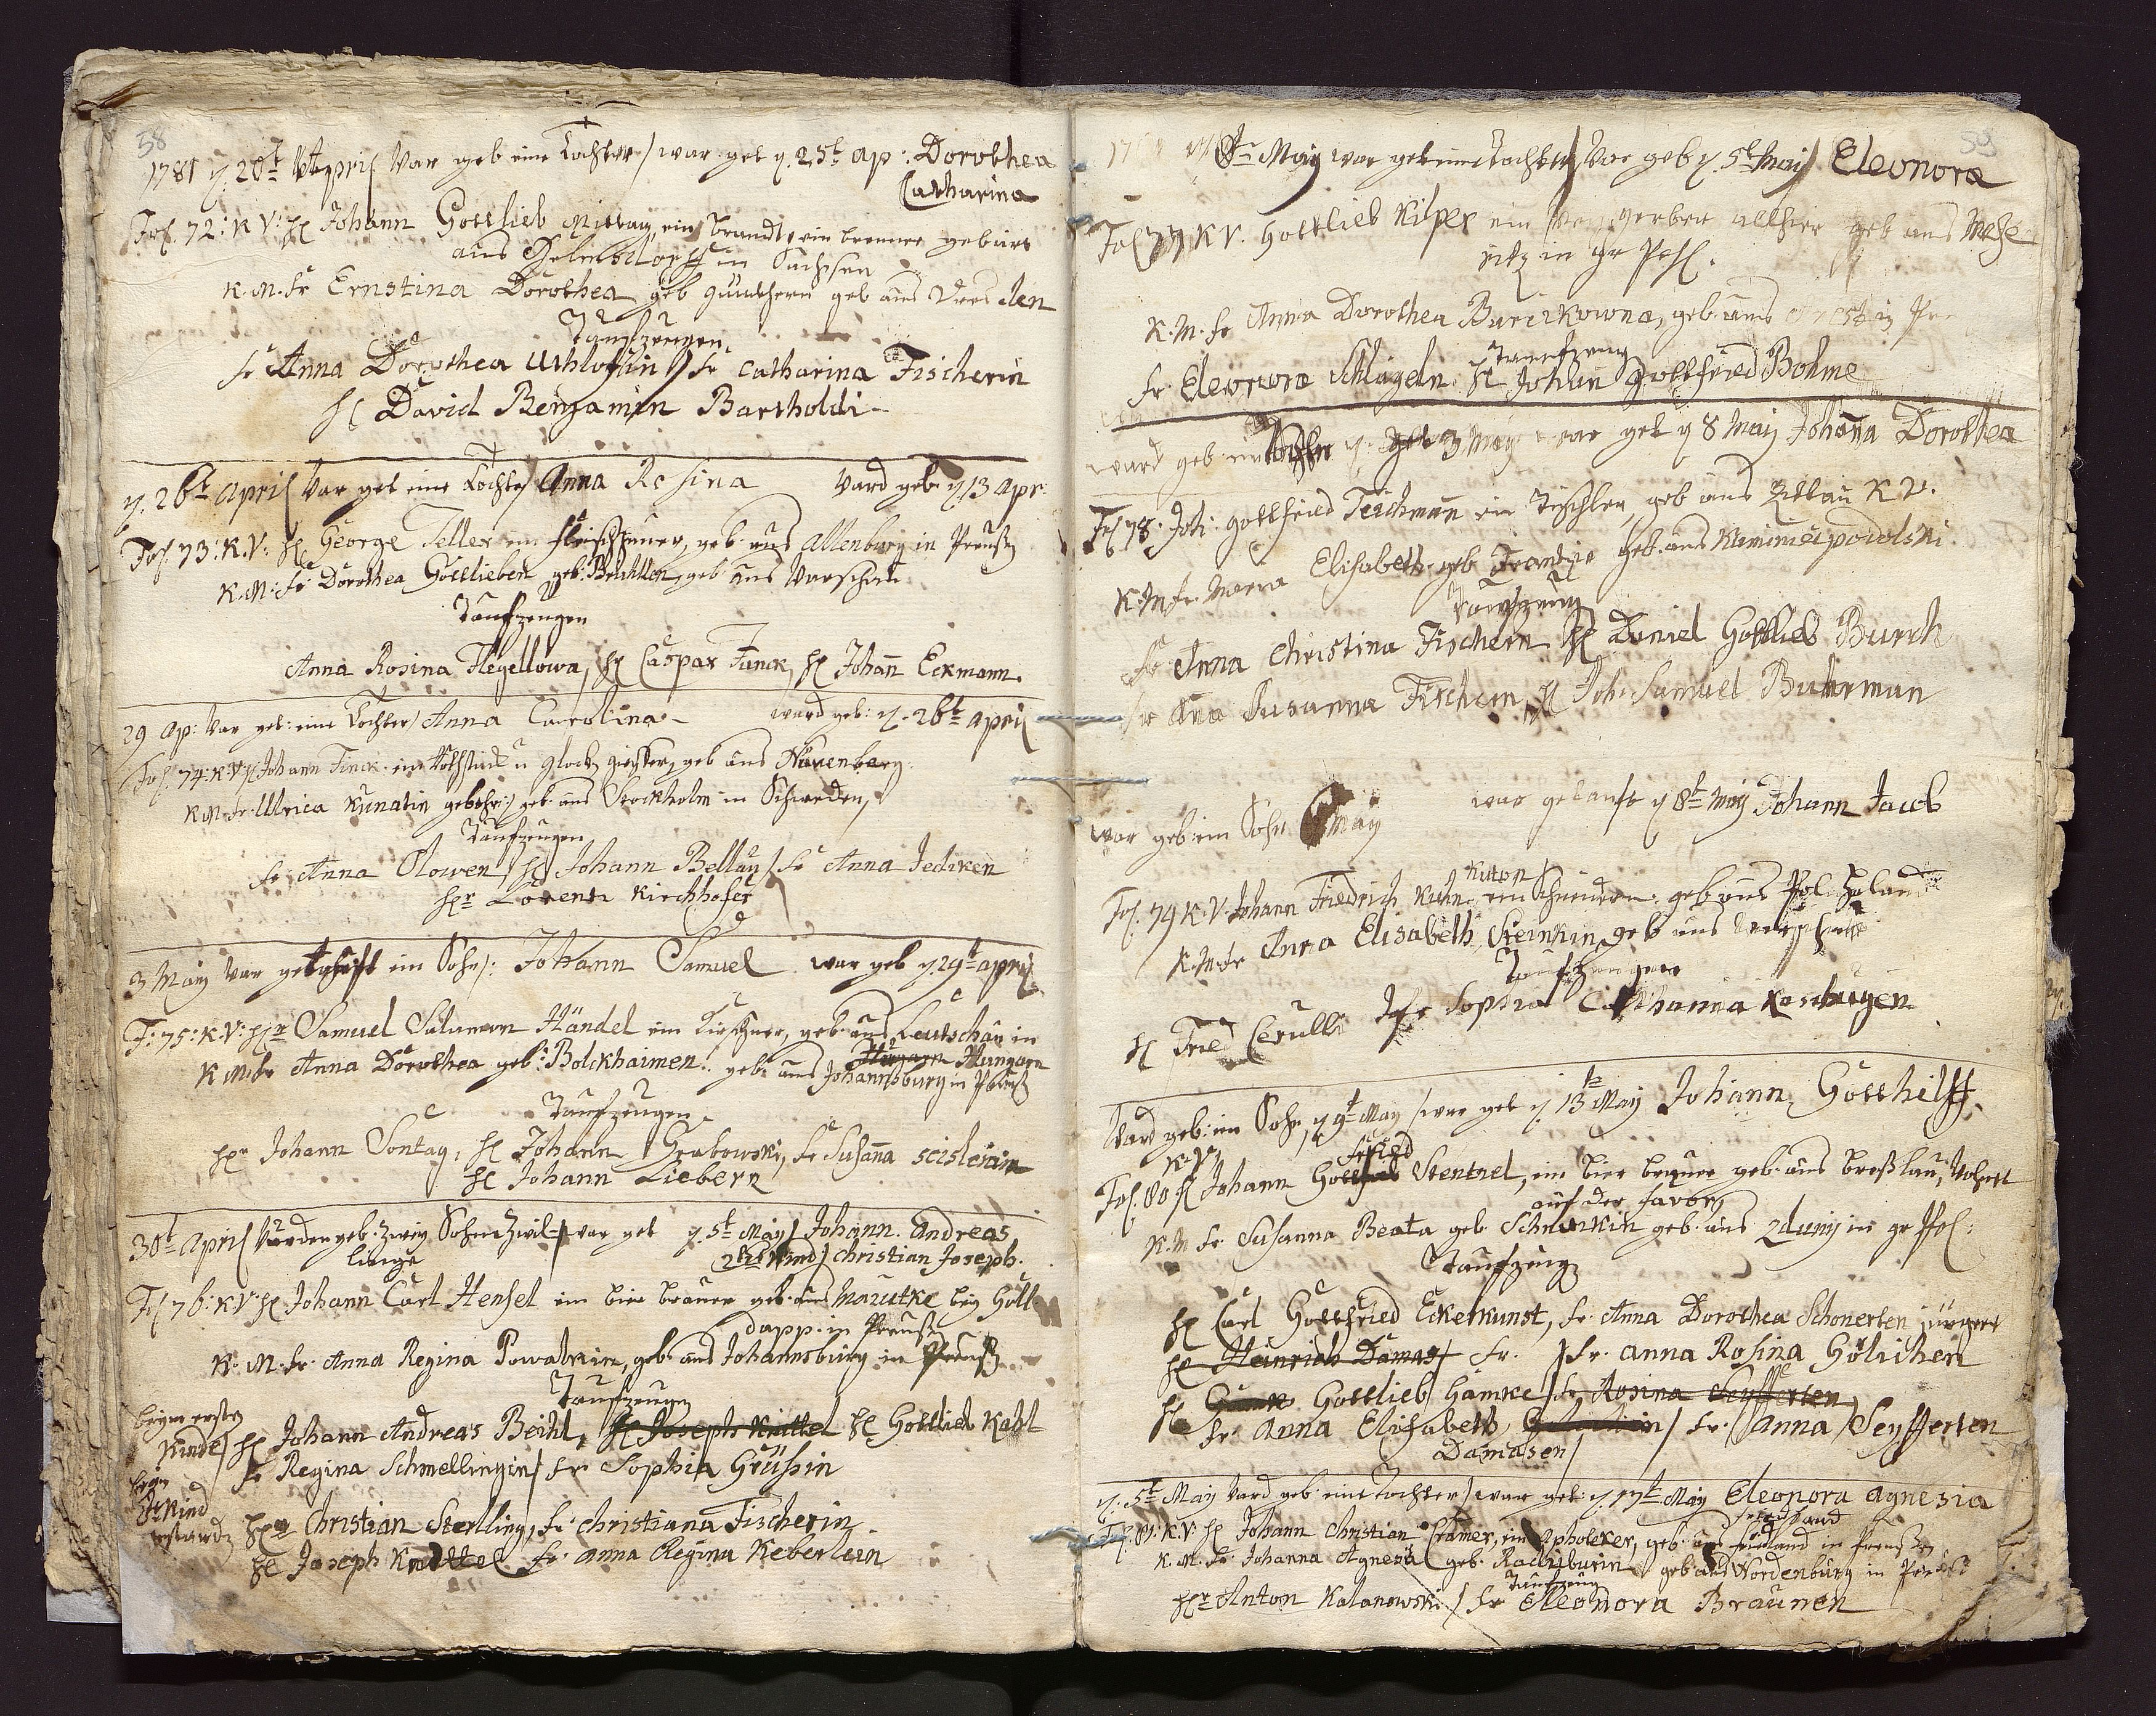 58
1781 d. 20t April War geb eine Tochter / war get d. 25t ap: Dorothea
Catharina
Fol. 72: K V: H Johann Gottlieb Mittag, ein Brandtwein brenner gebürt
aus in Sachsen
K. M. Fr Ernstina Dorothea geb Günthern geb aus Dresden
Taufzeugen
Fr Anna Dorothea / Fr Catharina Fischerin
H David Benjamin Bartholdi
d. 26t April War get eine Tochter Anna Rosina Ward geb d 13 Apr.
Fol. 73: K. V: H George Teller ein Fleischhauer, geb aus Allenburg in Preußen
K. M: Fr Dorothea Gottlieben geb: geb aus Varschau
Taufzeugen
Anna Rosina Flegellowa, H Caspar Funck, H Johann Eckmann.
29 Ap: War get: eine Tochter / Anna Carolina ward geb: d. 26t April
Fol. 74: K: V H Johann Finck ein u Glocken giesser, geb aus Nürenberg
K M Fr Ulrica Kunatin geb aus Stockholm in Schweden,
Taufzeugen
Fr Anna Olowen / H Johann Bellau / Fr Anna Jedcken
Hr Lorentz Kirchhofer
3 May War getaufft ein Sohn: Johann Samuel war geb d. 29t April
F: 75: K: V: Hr Samuel Salomon Händel ein Kirschner, geb aus Leutschau in
Hungarn Hungarn
K M: Fr Anna Dorothea geb: Bolckhaimen. geb: aus Johannsburg in Preuß
Taufzeugen
Hr Johann Sontag, H Johann Grabowski, Fr Susanna
H Johann Liebern
30t April Wurden geb: zwey Sohne Zwil- / war get d. 5t May / Johann Andreas
linge 2te Kind / Christian Joseph.
Fol 76: K: V: H Johann Carl Hensel ein bier brauer geb: aus Marutke bey Gol-
dapp in Preußen
K. M. Fr. Anna Regina Powalkin, geb: aus Johannsburg in Preuß
Taufzeugen
beym ersten
Kinde / H Johann Andreas Beihl, H Joseph Knittel H Gottlieb Kahl
Fr Regina Schmellingin / Fr Sophia Grüßin
beym
2t Kind
Hr Christian Sterling, Fr Christiana Fischerin
H Joseph Knittel Fr Anna Regina Keberlein
59
May war get eine Tochter / War geb d. 5t May / Eleonora
Fol 77 K V. Gottlieb Kilper ein gerber allhier geb aus Mese
ritz in gr Pohl.
K. M. Fr Anna Dorothea Burczkowna, geb: aus
Taufzeug
Fr Eleonora Schlägeln H Johan Gottfried Bohme
ward geb: ein d. 3 May war get d 8 May Johanna Dorothea
Fol 78. Joh: Gottfried Teichmann ein Tischler, geb aus Zittau K V.
K: M Fr. Maria Elisabeth geb geb: aus
Taufzeug
Fr Anna Christina Fischern H Daniel Gottlieb Burch
Fr Ana Susanna Fischern, H Joh: Samuel Buhrman
war geb: ein Sohn May war getauft d 8t May Johann Jacob
Kuton
Fol. 79 K. V. Johann Friedrich Kuhn ein Schneider geb aus
K. M. Fr Anna Elisabeth Steinkin geb aus
Taufzeugen
H Fried Cerulli Jfr Sophia
Ward geb: ein Sohn, d 9t May / war get d. 13te May Johann Gotthilff.
K: V: fried
Fol. 80 H Johann Gottfried Stentzel, ein bier brauer geb: aus Breßlau, Wohnt
auf der Favory
K. M Fr Susanna Beata geb. Schnurkin geb: aus Zduny in gr Pohl:
Taufzeugen
H Carl Gottfried Eckerkunst, Fr. Anna Dorothea Schonerten
H Heinrich Damas Fr. / Fr. Anna Rosina Gölichen
H Gottlieb Hämke / Fr Rosina Seyfferten
Fr Anna Elisabeth / Fr. Anna / Seyfferten
Damasen /
d. 5t May Ward geb: eine Tochter / war get: d. 17t May Eleonora Agnesia
Fol. 81: K: V: H Johann Christian Cramer, ein Apholeker, geb: aus Friedland in Preußen
K. M. Fr. Johanna Agnesia geb: geb aus Nordenburg in Preuß
Taufzeug
Hr Anton Kalanowski / Fr Eleonora Braunen